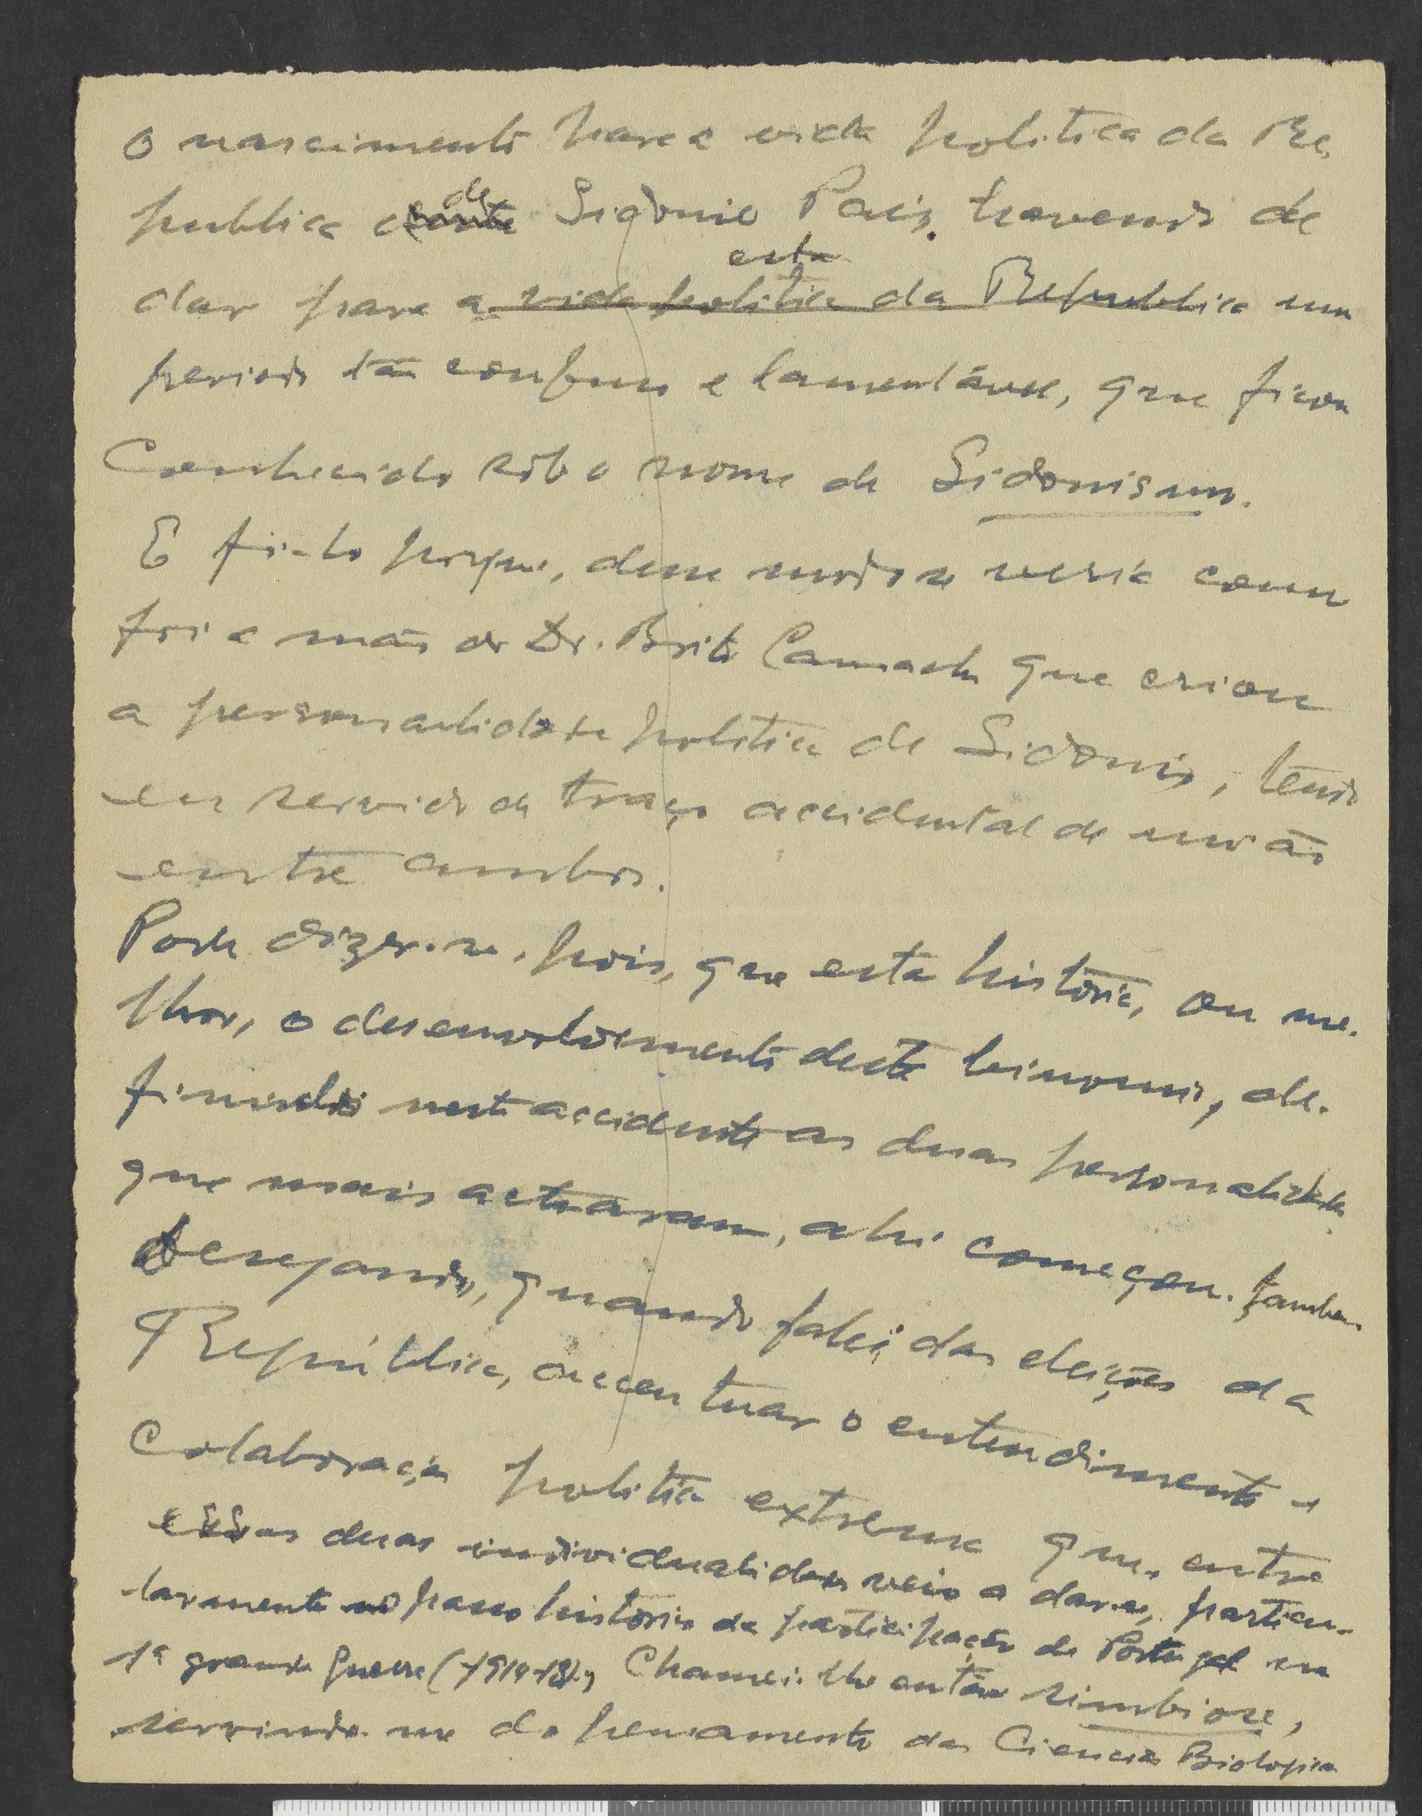 o nascimento para a vida politica da Re
publica de Sidonio Pais, havendo de
dar para a esta vida politica da Republica um
periodo tão confuso e lamentável, que ficou
conhecido sob o nome de Sidonismo.
E fi-lo porque, desse modo se veria como
foi a mão do Dr. Brito Camacho que criou
a personalidade politica de Sidonio, tendo
eu servido de traço accidental de união
entre ambos.
Pode dizer-se, pois, que esta história, ou me-
lhor, o desenvolvimento deste binomio, de-
finindo neste accidente as duas personalidades
que mais actuaram, ahi começou. Tambem
desejando, quando falei das eleições da
República, accentuar o entendimento e
colaboração politica extrema que, entre
essas duas individualidades veio a dar-se, particu-
larmente no passo historico da participação de Portugal na
1ª grande Guerra (1914-18), Chamei-lhe então simbiose,
servindo-me do pensamento das Ciencias Biologicas